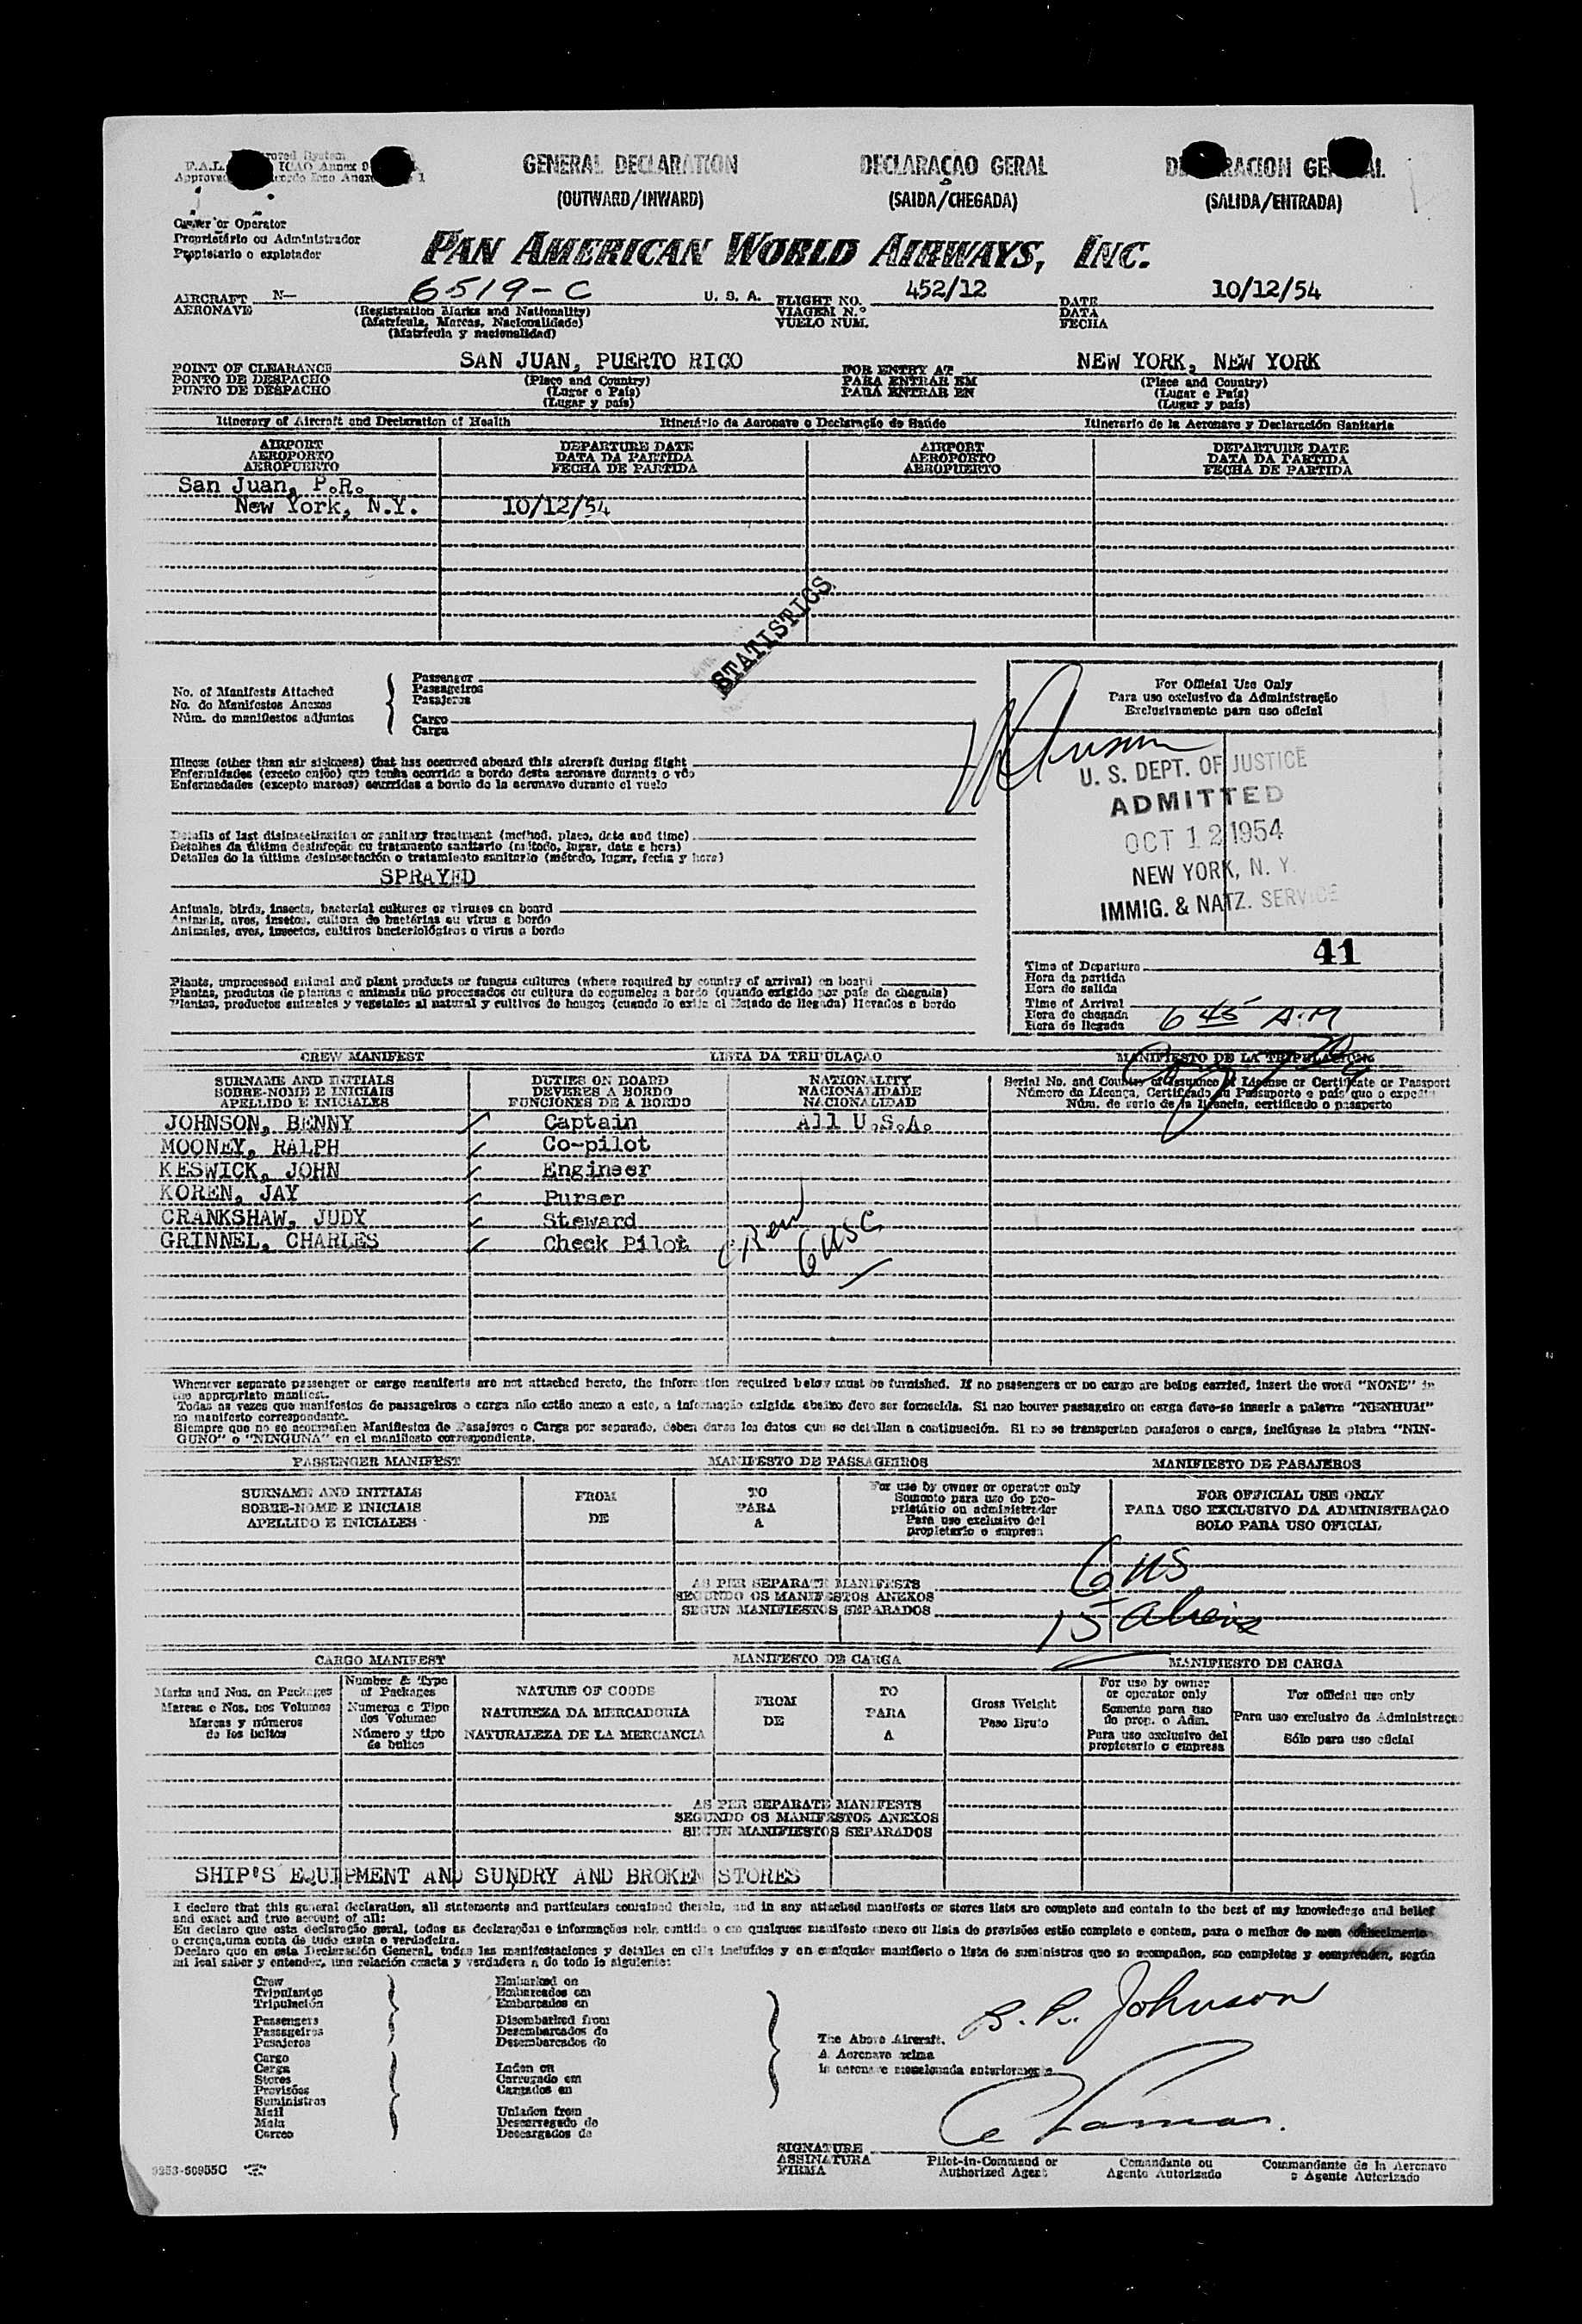 GENERAL DECLARATION
(OUTWARD/INWARD)
DECLARAÇAO GERAL
(SAIDA/CHEGADA)
(SALIDA/ENTRADA)
Owner or Operator
Proprietário ou Administrador
Propietario o explotador
PAN AMERICAN WORLD AIRWAYS, INC.
AIRCRAFT N— 6519-C U. S. A. FLIGHT NO. 452/12 DATE 10/12/54
AERONAVE (Registration Marks and Nationality) VIAGEM N.º DATA
(Matrícula, Marcas, Nacionalidade) VUELO NUM. FECHA
(Matrícula y nacionalidad)
POINT OF CLEARANCE SAN JUAN, PUERTO RICO FOR ENTRY AT NEW YORK, NEW YORK
PONTO DE DESPACHO (Place and Country) PARA ENTRAR EM (Place and Country)
PUNTO DE DESPACHO (Lugar e País) PARA ENTRAR EN (Lugar e País)
(Lugar y país) (Lugar y país)
Itinerary of Aircraft and Declaration of Health Itinerário da Aeronave e Declaração de Saúde Itinerario de la Aeronave y Declaración Sanitaria
AIRPORT DEPARTURE DATE AIRPORT DEPARTURE DATE
AEROPORTO DATA DA PARTIDA AEROPORTO DATA DA PARTIDA
AEROPUERTO FECHA DE PARTIDA AEROPUERTO FECHA DE PARTIDA
San Juan, P.R.
New York, N.Y. 10/12/54
STATISTICS
No. of Manifests Attached
No. de Manifestos Anexos
Núm. de manifiestos adjuntos
Passenger
Passageiros
Pasajeros
Cargo
Carga
For Official Use Only
Para uso exclusivo da Administração
Exclusivamente para uso oficial
U. S. DEPT. OF JUSTICE
ADMITTED
OCT 12 1954
NEW YORK, N. Y.
IMMIG. & NATZ. SERVICE
41
Time of Departure
Hora da partida
Hora de salida
Time of Arrival
Hora de chegada 6 45 A.M
Hora de llegada
Illness (other than air sickness) that has occurred aboard this aircraft during flight
Enfermidades (exceto enjôo) que tenha ocorrido a bordo desta aeronave durante o vôo
Enfermedades (excepto mareos) ocurridas a bordo de la aeronave durante el vuelo
Details of last disinsectization or sanitary treatment (method, place, date and time)
Detalhes da última desinfeção ou tratamento sanitario (método, lugar, data e hora)
Detalles de la última desinsectación o tratamiento sanitario (método, lugar, fecha y hora)
SPRAYED
Animals, birds, insects, bacterial cultures or viruses on board
Animais, aves, insetos, cultura de bactérias ou virus a bordo
Animales, aves, insectos, cultivos bacteriológicos o virus a bordo
Plants, unprocessed animal and plant products or fungus cultures (where required by country of arrival) on board
Plantas, produtos de plantas e animais não processados ou cultura de cogumelos a bordo (quando exigido por país de chegada)
Plantas, productos animales y vegetales al natural y cultivos de hongos (cuando lo exija el Estado de llegada) llevados a bordo
CREW MANIFEST LISTA DA TRIPULAÇAO MANIFIESTO DE LA TRIPULACION
SURNAME AND INITIALS DUTIES ON BOARD NATIONALITY Serial No. and Country of Issuance of License or Certificate or Passport
SOBRE-NOME E INICIAIS DEVERES A BORDO NACIONALIDADE Número da Licença, Certificado ou Passaporte e país que o expediu
APELLIDO E INICIALES FUNCIONES DE A BORDO NACIONALIDAD Núm. de serie de la licencia, certificado o pasaporte
JOHNSON, BENNY Captain All U.S.A.
MOONEY, RALPH Co-pilot
KESWICK, JOHN Engineer
KOREN, JAY Purser
CRANKSHAW, JUDY Steward
GRINNEL, CHARLES Check Pilot
Crew
6 USC
Whenever separate passenger or cargo manifests are not attached hereto, the information required below must be furnished. If no passengers or no cargo are being carried, insert the word "NONE" in
the appropriate manifest.
Todas as vezes que manifestos de passageiros e carga não estão anexo a este, a informação exigida abaixo deve ser fornecida. Si nao houver passageiro ou carga deve-se inserir a palavra "NENHUM"
no manifesto correspondente.
Siempre que no se acompañen Manifiestos de Pasajeros o Carga por separado, deben darse los datos que se detallan a continuación. Si no se transportan pasajeros o carga, inclúyase la plabra "NIN-
GUNO" o "NINGUNA" en el manifiesto correspondiente.
PASSENGER MANIFEST MANIFESTO DE PASSAGEIROS MANIFIESTO DE PASAJEROS
SURNAME AND INITIALS FROM TO For use by owner or operator only FOR OFFICIAL USE ONLY
SOBRE-NOME E INICIAIS DE PARA Somente para uso do pro- PARA USO EXCLUSIVO DA ADMINISTRAÇAO
APELLIDO E INICIALES A prietário ou administrador SOLO PARA USO OFICIAL
Para uso exclusivo del
propietario o empresa
AS PER SEPARATE MANIFESTS
SEGUNDO OS MANIFESTOS ANEXOS
SEGUN MANIFIESTOS SEPARADOS
6 US
15 aliens
CARGO MANIFEST MANIFESTO DE CARGA MANIFIESTO DE CARGA
Marks and Nos. on Packages Number & Type of Packages NATURE OF GOODS FROM TO Gross Weight For use by owner or operator only For official use only
Marcas e Nos. nos Volumes Numeros e Tipo dos Volumes NATUREZA DA MERCADORIA DE PARA Peso Bruto Somente para uso do prop. o Adm. Para uso exclusivo da Administraçao
Marcas y números de los bultos Número y tipo de bultos NATURALEZA DE LA MERCANCIA A Para uso exclusivo del propietario o empresa Sólo para uso oficial
AS PER SEPARATE MANIFESTS
SEGUNDO OS MANIFESTOS ANEXOS
SEGUN MANIFIESTOS SEPARADOS
SHIP'S EQUIPMENT AND SUNDRY AND BROKEN STORES
I declare that this general declaration, all statements and particulars contained therein, and in any attached manifests or stores lists are complete and contain to the best of my knowledge and belief
and exact and true account of all:
Eu declaro que esta declaração geral, todas as declarações e informações nela contida e em qualquer manifesto anexo ou lista de provisões estão completo e contem, para o melhor de meu conhecimento
o crença, uma conta de tudo exata e verdadeira.
Declaro que en esta Declaración General, todas las manifestaciones y detalles en ella incluídos y en cualquier manifiesto o lista de suministros que se acompañen, son completos y comprenden, según
mi leal saber y entender, una relación exacta y verdadera a de todo lo siguiente:
Crew
Tripulantes
Tripulación
Passengers
Passageiros
Pasajeros
Cargo
Carga
Stores
Provisões
Suministros
Mail
Mala
Correo
Embarked on
Embarcados em
Embarcados en
Disembarked from
Desembarcados do
Desembarcados de
Laden on
Carregado em
Cargados en
Unladen from
Descarregado do
Descargados de
The Above Aircraft.
A Aeronave acima
la aeronave mencionada anteriormente
B. R. Johnson
SIGNATURE
ASSINATURA
FIRMA
Pilot-in-Command or Comandante ou Commandante de la Aeronave
Authorized Agent Agente Autorizado o Agente Autorizado